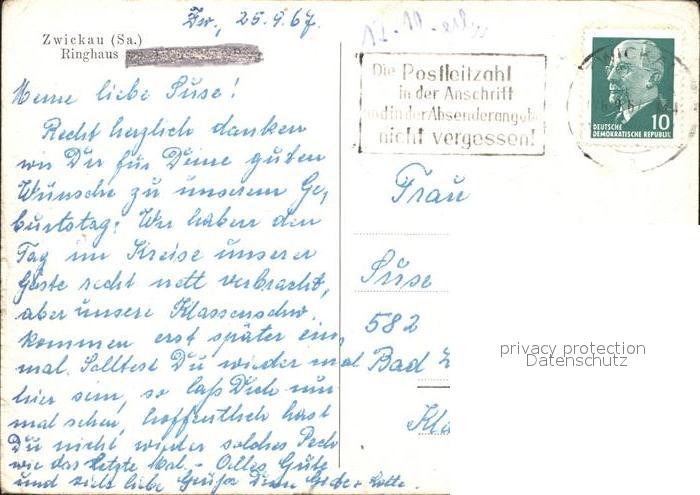 Zw., 25.9.67.
Zwickau (Sa.)
Ringhaus
Meine liebe Suse!
Recht herzlich danken
wir Dir für Deine guten
Wünsche zu unserem Ge-
burtstag. Wir haben den
Tag im Kreise unserer
Gäste recht nett verbracht,
aber unsere Klassenschw.
kommen erst später ein-
mal. Solltest Du wieder mal
hier sein, so laß Dich nun
mal sehen, hoffentlich hast
Du nicht wieder solches Pech
wie das letzte Mal. – Alles Gute
und viele liebe Grüße Deine
Lotte.
17.10.
Die Postleitzahl
in der Anschrift
und in der Absenderangabe
nicht vergessen!
DEUTSCHE
DEMOKRATISCHE REPUBLIK
10
Frau
Suse
582
Bad
privacy protection
Datenschutz